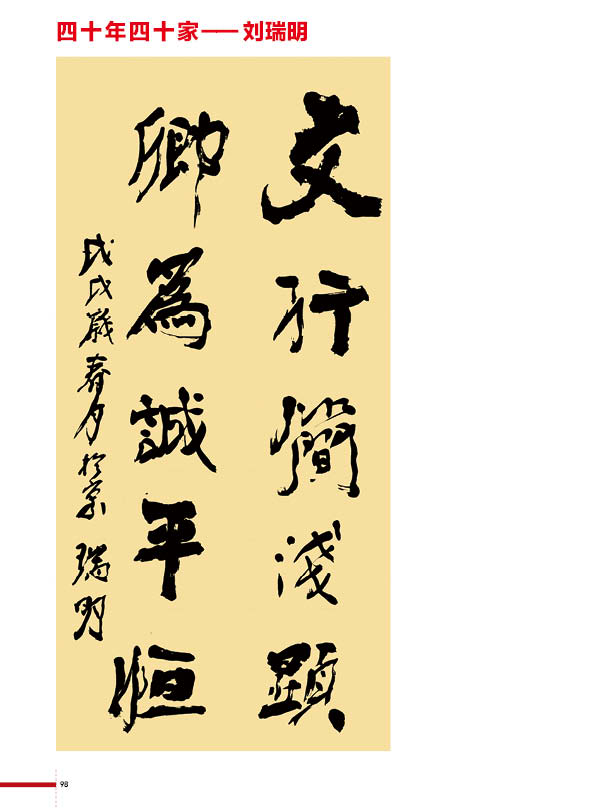 四十年四十家——刘瑞明
文行簡淺顯
卿為誠平恒
戊戌歲春月於京 瑞明
98